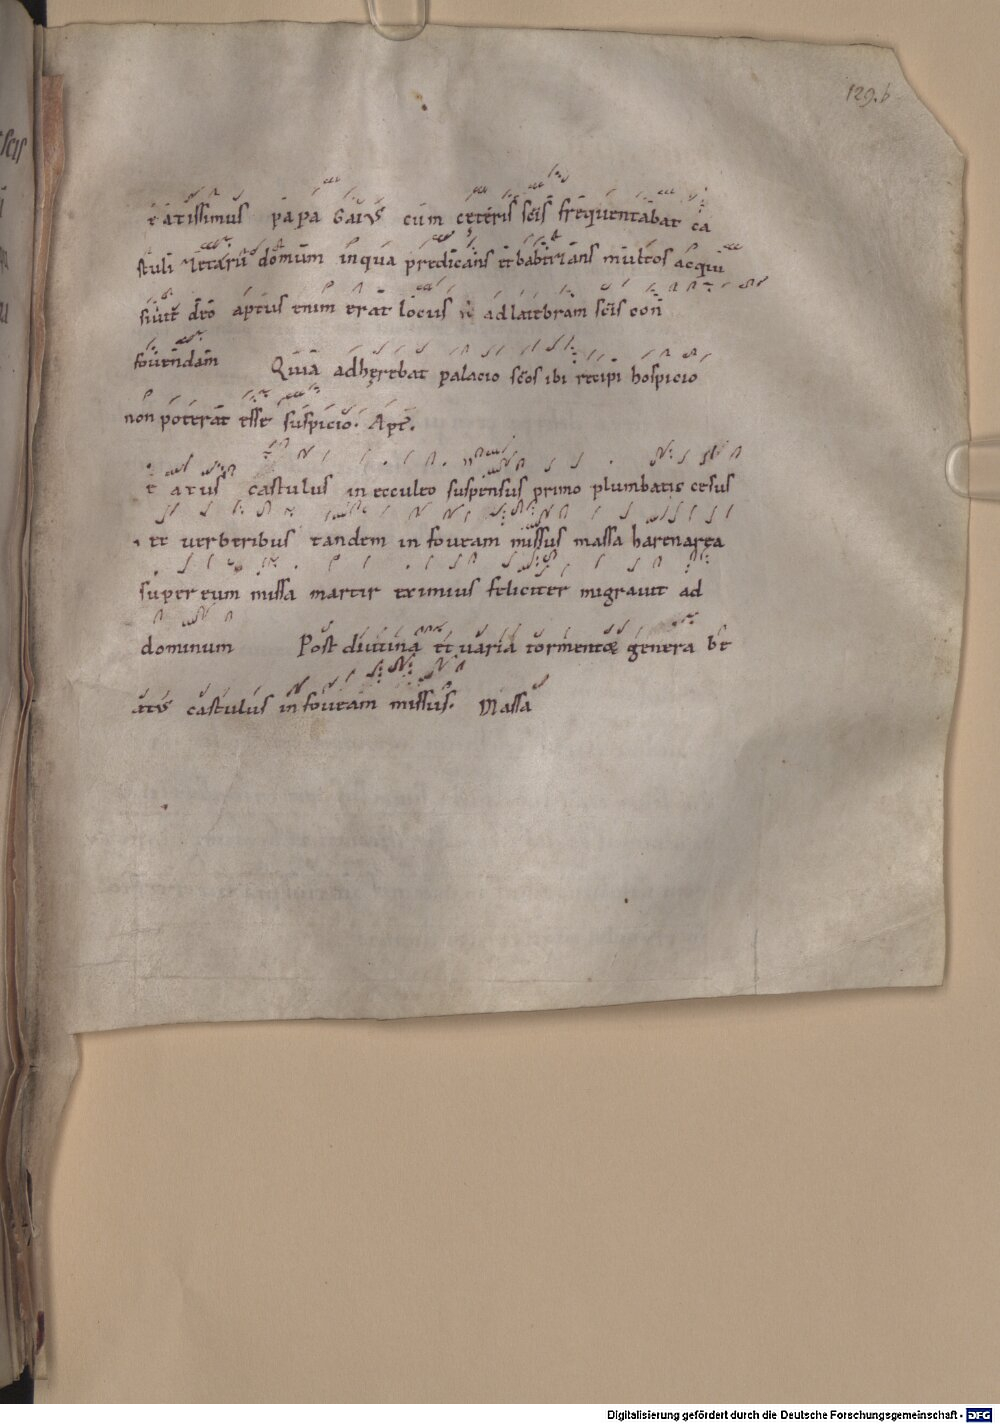 129.b
scis
eatissimus papa Gaius cum ceteris scis frequentabat ca
stuli zetariū domum in qua predicans et babtizans multos acqui
siuit deo aptus enim erat locus ad latebram scis con
fouendam Quia adherebat palacio scos ibi recipi hospicio
non poterat esse suspicio. Apt.
e atus castulus in ecculeo suspensus primo plumbatis cesus
et uerberibus tandem in foueam missus massa harenarea
super eum missa martir eximius feliciter migrauit ad
dominum Post diutina et uaria tormentorum genera be
atus castulus in foueam missus. Massa
Digitalisierung gefördert durch die Deutsche Forschungsgemeinschaft - DFG